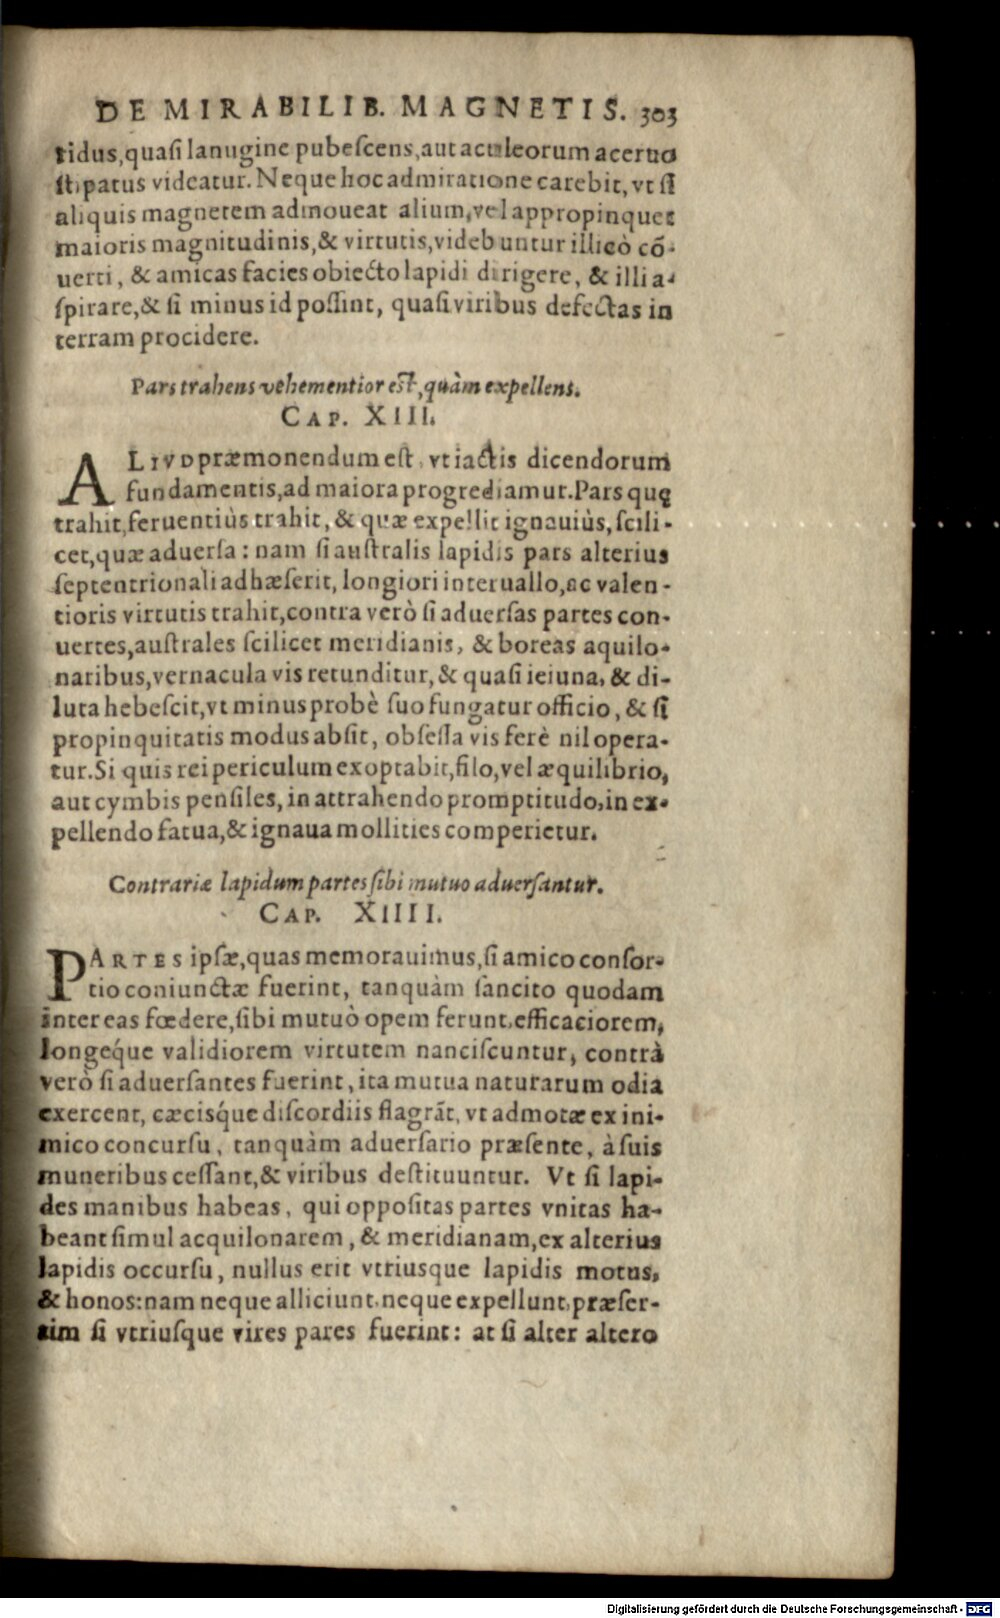 DE MIRABILIB. MAGNETIS. 303
tidus,quaſi lanugine pubeſcens,aut aculeorum aceruo
ſtipatus videatur. Neque hoc admiratione carebit, vt ſi
aliquis magnetem admoueat alium,vel appropinquet
maioris magnitudinis,& virtutis,videbuntur illicò cō-
uerti, & amicas facies obiecto lapidi dirigere, & illi a-
ſpirare,& ſi minus id poſſint, quaſi viribus defectas in
terram procidere.
Pars trahens vehementior eſt,quàm expellens.
CAP. XIII.
ALIVD præmonendum eſt, vt iactis dicendorum
fundamentis,ad maiora progrediamur.Pars quę
trahit,feruentiùs trahit, & quæ expellit ignauiùs, ſcili-
cet,quæ aduerſa: nam ſi auſtralis lapidis pars alterius
ſeptentrionali adhæſerit, longiori interuallo,ac valen-
tioris virtutis trahit,contra verò ſi aduerſas partes con-
uertes,auſtrales ſcilicet meridianis, & boreas aquilo-
naribus,vernacula vis retunditur,& quaſi ieiuna, & di-
luta hebeſcit,vt minus probè ſuo fungatur officio, & ſi
propinquitatis modus abſit, obſeſſa vis ferè nil opera-
tur.Si quis rei periculum exoptabit,filo,vel æquilibrio,
aut cymbis penſiles, in attrahendo promptitudo,in ex-
pellendo fatua,& ignaua mollities comperietur.
Contrariæ lapidum partes ſibi mutuo aduerſantur.
CAP. XIIII.
PARTES ipſæ,quas memorauimus,ſi amico conſor-
tio coniunctæ fuerint, tanquàm ſancito quodam
inter eas fœdere,ſibi mutuò opem ferunt,efficaciorem,
longeq́ue validiorem virtutem nanciſcuntur, contrà
verò ſi aduerſantes fuerint, ita mutua naturarum odia
exercent, cæciſq́ue diſcordiis flagrāt, vt admotæ ex ini-
mico concurſu, tanquàm aduerſario præſente, à ſuis
muneribus ceſſant,& viribus deſtituuntur. Vt ſi lapi-
des manibus habeas, qui oppoſitas partes vnitas ha-
beant ſimul acquilonarem, & meridianam,ex alterius
lapidis occurſu, nullus erit vtriusque lapidis motus,
& honos:nam neque alliciunt,neque expellunt,præſer-
tim ſi vtriuſque vires pares fuerint: at ſi alter altero
Digitalisierung gefördert durch die Deutsche Forschungsgemeinschaft - DFG